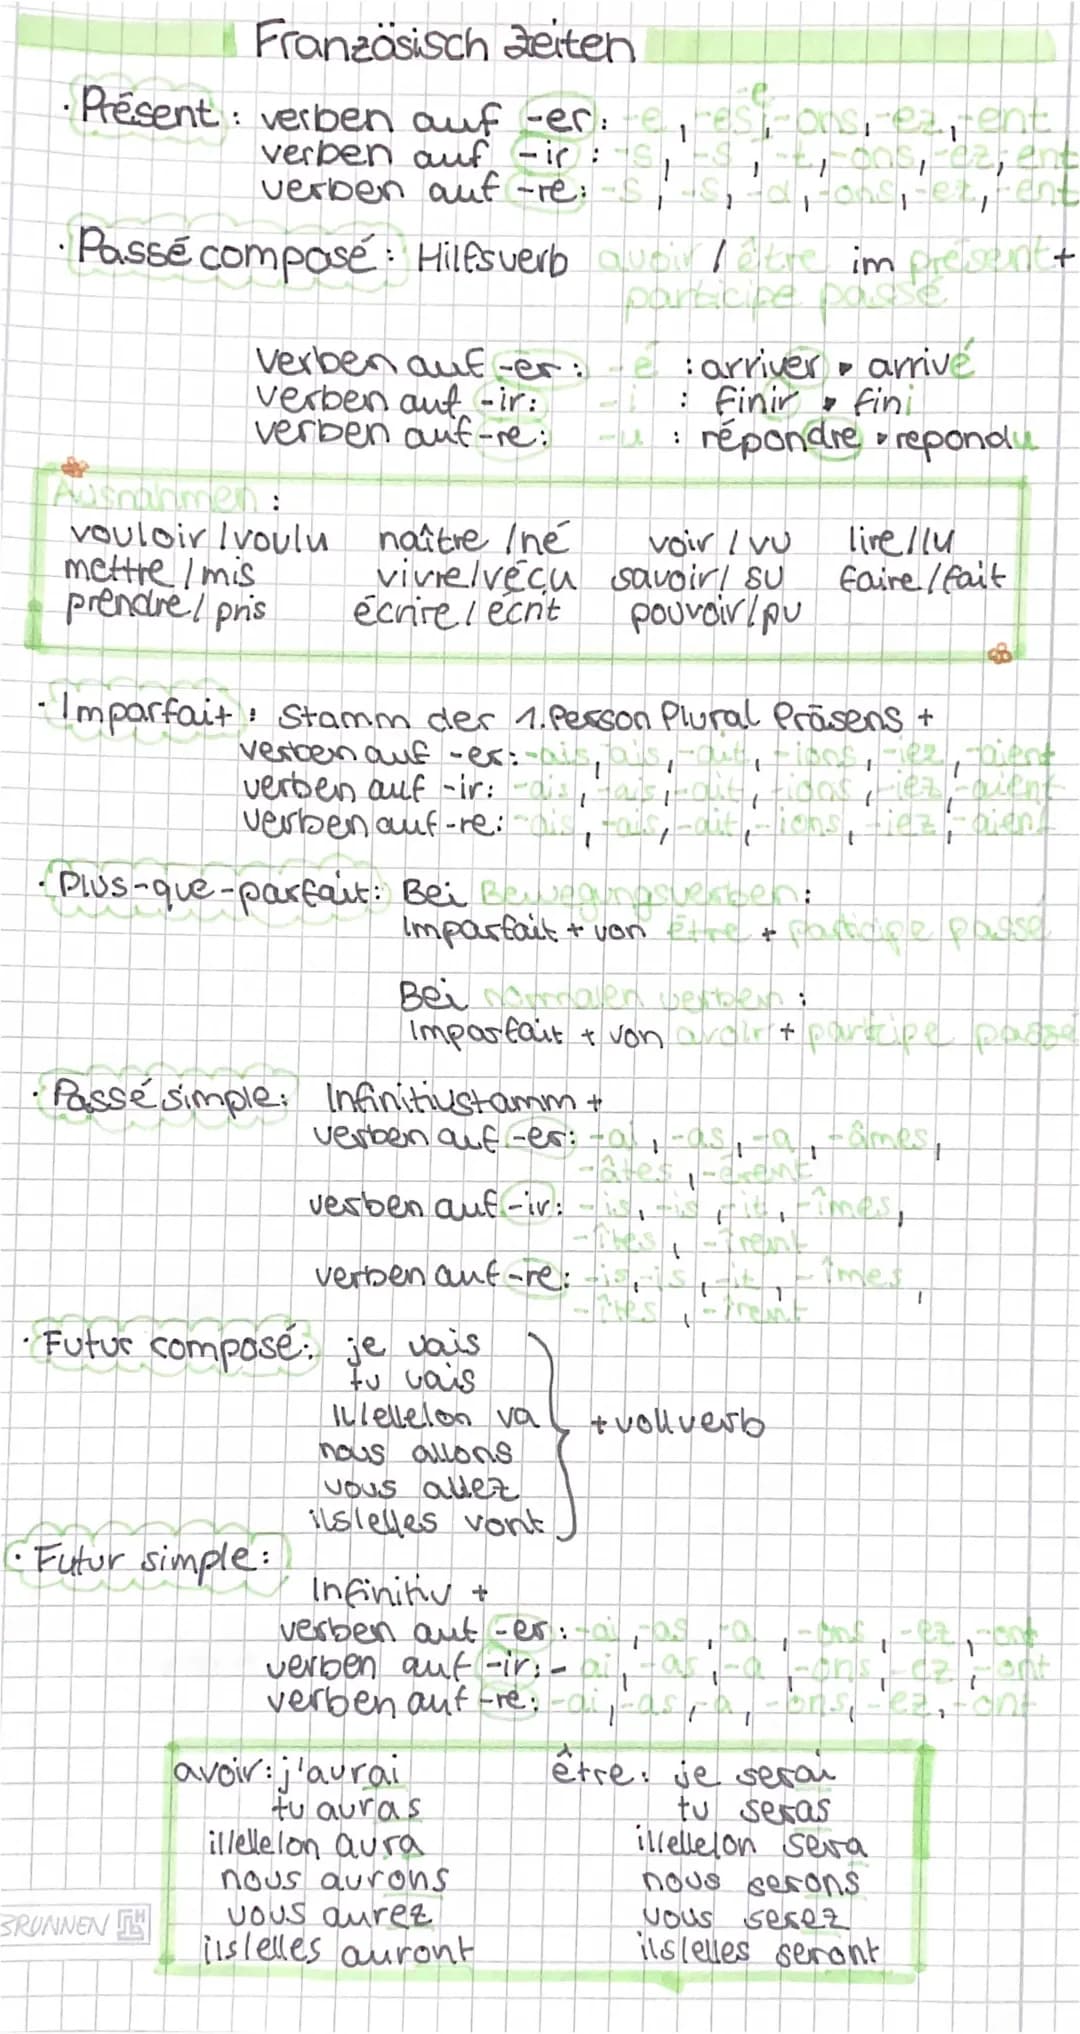 Französisch Zeiten
· Présent : verben auf -er: -e, -es, -e, -ons, -ez, -ent
verben auf -ir : -s, -s, -t, -ons, -ez, ent
verben auf -re: -s, -s, -d, -ons, -ez, -ent
· Passé composé: Hilfsverb avoir / être im présent +
participe passé
verben auf -er : -é : arriver ▸ arrivé
verben auf -ir: -i : finir ▸ fini
verben auf -re: -u : répondre ▸ repondu
Ausnahmen :
vouloir / voulu naître / né voir / vu lire / lu
mettre / mis vivre / vécu savoir / su faire / fait
prendre / pris écrire / écrit pouvoir / pu
· Imparfait : Stamm der 1. Person Plural Präsens +
verben auf -er: -ais, ais, -ait, -ions, -iez, -aient
verben auf -ir: -ais, -ais, -ait, -ions, -iez, -aient
verben auf -re: -ais, -ais, -ait, -ions, -iez, -aient
· Plus-que-parfait: Bei Bewegungsverben:
Imparfait + von être + participe passé
Bei normalen verben :
Imparfait + von avoir + participe passé
· Passé simple: Infinitivstamm +
verben auf -er: -ai, -as, -a, -âmes,
-âtes, -èrent
verben auf -ir: -is, -is, -it, -îmes,
-îtes, -irent
verben auf -re: -is, -is, -it, -îmes,
-îtes, -irent
· Futur composé: je vais
tu vais
il/elle/on va + vollverb
nous allons
vous allez
ils/elles vont
· Futur simple:
Infinitiv +
verben auf -er: -ai, -as, -a, -ons, -ez, -ont
verben auf -ir: -ai, -as, -a, -ons, -ez, -ont
verben auf -re: -ai, -as, -a, -ons, -ez, -ont
avoir: j'aurai être: je serai
tu auras tu seras
il/elle/on aura il/elle/on sera
nous aurons nous serons
vous aurez vous serez
ils/elles auront ils/elles seront
BRUNNEN